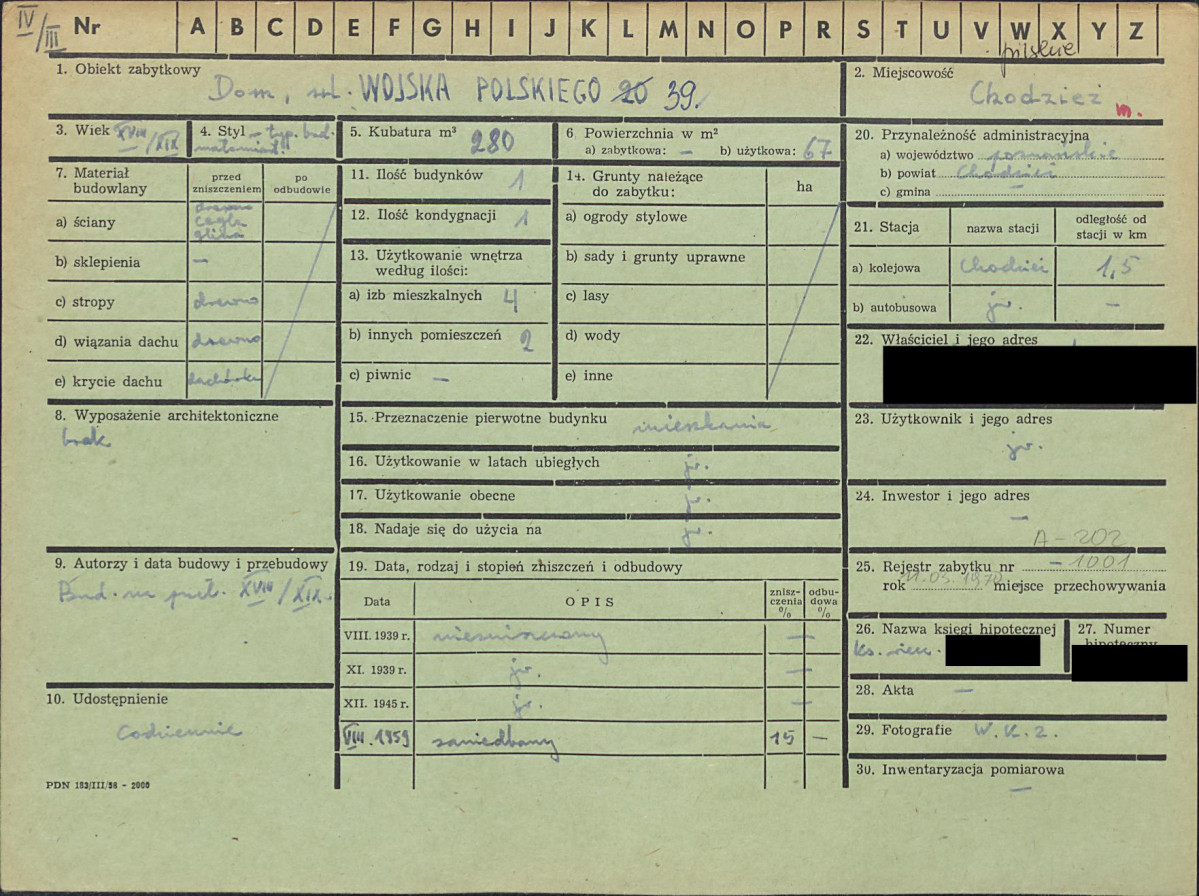 IV/III
Nr A B C D E F G H I J K L M N O P R S T U V W X Y Z
pilskie
1. Obiekt zabytkowy
Dom, ul. WOJSKA POLSKIEGO 20 39.
2. Miejscowość
Chodzież m.
3. Wiek XVIII/XIX
4. Styl – typ. bud. małomiast.
5. Kubatura m³ 280
6. Powierzchnia w m²
a) zabytkowa: – b) użytkowa: 67
7. Materiał budowlany
przed zniszczeniem
po odbudowie
a) ściany drewno cegła glina
b) sklepienia –
c) stropy drewno
d) wiązania dachu drewno
e) krycie dachu dachówka
8. Wyposażenie architektoniczne
brak
9. Autorzy i data budowy i przebudowy
Bud. na przeł. XVIII/XIX.
10. Udostępnienie
Codziennie
PDN 183/III/58 - 2000
11. Ilość budynków 1
12. Ilość kondygnacji 1
13. Użytkowanie wnętrza według ilości:
a) izb mieszkalnych 4
b) innych pomieszczeń 2
c) piwnic –
14. Grunty należące do zabytku:
ha
a) ogrody stylowe
b) sady i grunty uprawne
c) lasy
d) wody
e) inne
15. Przeznaczenie pierwotne budynku mieszkania
16. Użytkowanie w latach ubiegłych jw.
17. Użytkowanie obecne jw.
18. Nadaje się do użycia na jw.
19. Data, rodzaj i stopień zniszczeń i odbudowy
Data OPIS zniszczenia % odbudowa %
VIII. 1939 r. niezniszczony –
XI. 1939 r. jw. –
XII. 1945 r. jw. –
VIII. 1959 zaniedbany 15 –
20. Przynależność administracyjna
a) województwo poznańskie
b) powiat Chodzież
c) gmina –
21. Stacja
nazwa stacji
odległość od stacji w km
a) kolejowa Chodzież 1,5
b) autobusowa jw. –
22. Właściciel i jego adres
23. Użytkownik i jego adres
jw.
24. Inwestor i jego adres
–
A-202
25. Rejestr zabytku nr – 1001
rok 11.03.1970 miejsce przechowywania
26. Nazwa księgi hipotecznej
ks. wiecz.
27. Numer hipoteczny
28. Akta –
29. Fotografie W.K.Z.
30. Inwentaryzacja pomiarowa
–